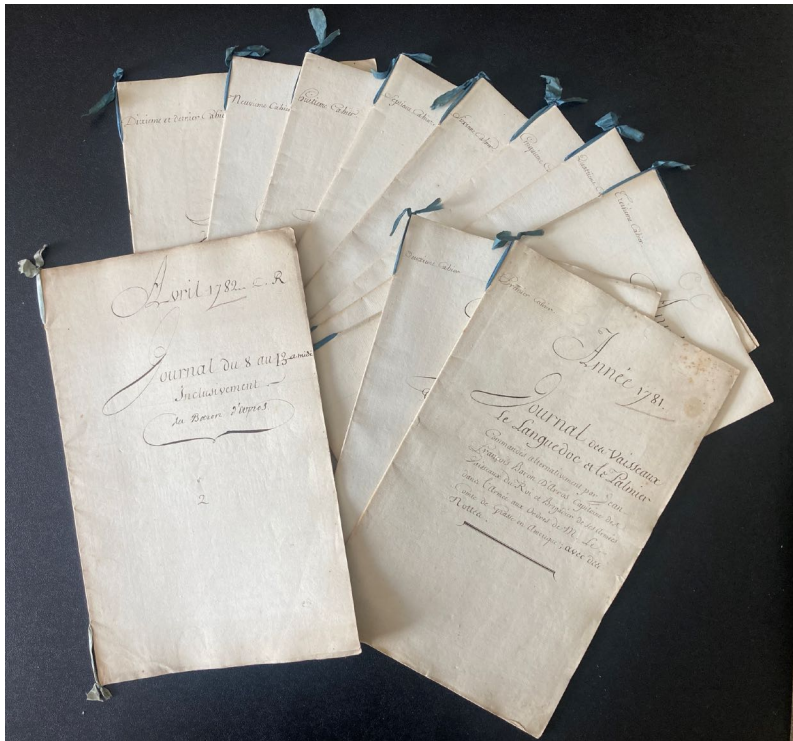 Dixieme et dernier Cahier
Neuvieme Cahier
Huitieme Cahier
Septieme Cahier
Sixieme Cahier
Cinquieme Ca
Quatrieme Ca
Troisieme Cahier
Deuxieme Cahier
Premier Cahier
Avril 1782. C. R
Journal du 8 au 13 a midi
Inclusivement
du Baron D'arros
2
Année 1781.
Journal des Vaisseaux
le Languedoc et le Palmier
Commandés alternativement par Jean
François Baron D'arros Capitaine des
Vaisseaux du Roi et Brigadier
sous L'armée aux ordres de M. Le
Comte de Grasse en Amerique, avec des
Nottes.